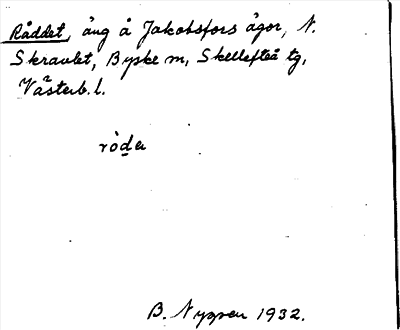 Råddet, äng å Jakobsfors ägor, N.
Skravlet, Byske m, Skellefteå tg,
Västerb. l.
ròde
B. Nygren 1932.